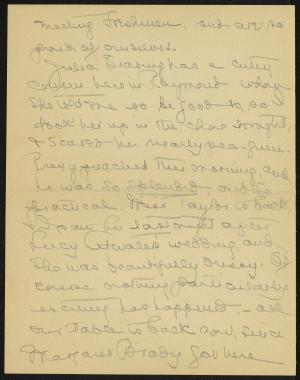 meeting Freshmen, and are so
proud of ourselves.
Julia Dearing has a cutey
cousin here in Raymond whom
she told me to be good to, so
took her up in the choir tonight,
& scared her nearly pea-green.
Prexy preached this morning, and
he was so splendid and so
practical. Miss Taylor is back
I saw her last night after
Lucy wedding, and
she was beautifully dressy. Of
course nothing particularly
exciting has happened, – all
our table is back now, since
Margaret Brady got here